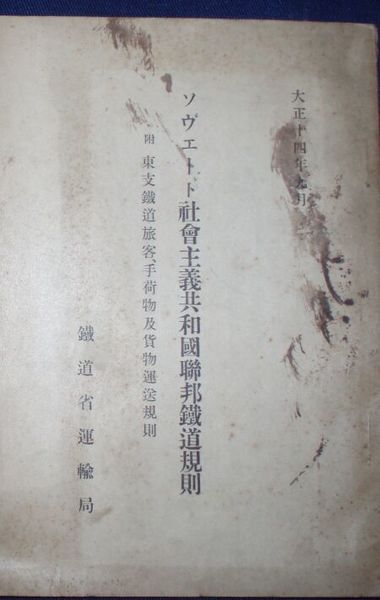 大正十四年九月
ソヴエート社會主義共和國聯邦鐵道規則
附 東支鐵道旅客、手荷物及貨物運送規則
鐵道省運輸局